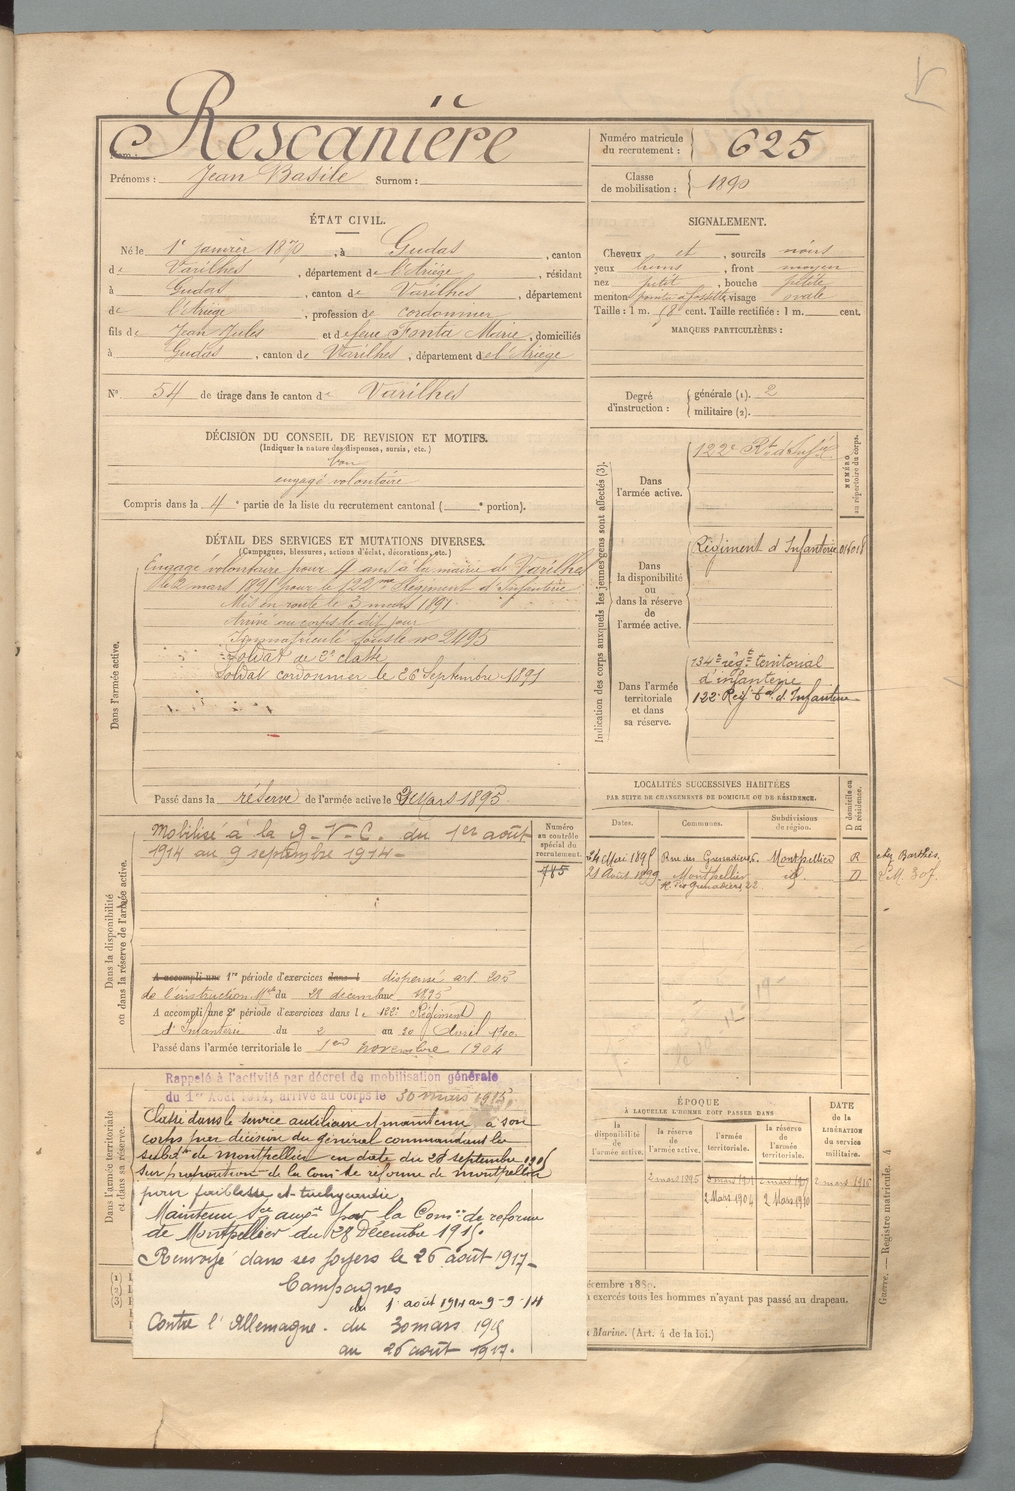 Nom : Rescanière
Prénoms : Jean Basile Surnom :
Numéro matricule du recrutement : 625
Classe de mobilisation : 1890
ÉTAT CIVIL.
Né le 1er janvier 1870, à Gudas, canton
de Varilhes, département de l'Ariège, résidant
à Gudas, canton de Varilhes, département
de l'Ariège, profession de cordonnier
fils de Jean Jules et de feue Fonta Marie, domiciliés
à Gudas, canton de Varilhes, département de l'Ariège
N° 54 de tirage dans le canton de Varilhes
SIGNALEMENT.
Cheveux et, sourcils noirs
yeux bruns, front moyen
nez petit, bouche petite
menton à fossette, visage ovale
Taille : 1 m. cent. Taille rectifiée : 1 m. cent.
MARQUES PARTICULIÈRES :
Degré d'instruction : générale (1). 2
militaire (2).
DÉCISION DU CONSEIL DE REVISION ET MOTIFS.
(Indiquer la nature des dispenses, sursis, etc.)
bon
engagé volontaire
Compris dans la 4e partie de la liste du recrutement cantonal ( e portion).
DÉTAIL DES SERVICES ET MUTATIONS DIVERSES.
(Campagnes, blessures, actions d'éclat, décorations, etc.)
Dans l'armée active.
Engagé volontaire pour 4 ans à la mairie de Varilhes
le 2 mars 1891 pour le 122me Régiment d'Infanterie
Mis en route le 3 mars 1891
Arrivé au corps le dit jour
Immatriculé sous le no 2495
Soldat de 2e classe
Soldat cordonnier le 26 Septembre 1891
Passé dans la réserve de l'armée active le 2 Mars 1895
Indication des corps auxquels les jeunes gens sont affectés (3).
NUMÉRO au répertoire du corps.
Dans l'armée active.
122e Rt d'Infie
Dans la disponibilité ou dans la réserve de l'armée active.
Régiment d'Infanterie
Dans l'armée territoriale et dans sa réserve.
134e régt territorial
d'infanterie
122e Régt tal d'Infanterie
Dans la disponibilité ou dans la réserve de l'armée active.
Numéro au contrôle spécial du recrutement.
785
Mobilisé à la G.V.C. du 1er août
1914 au 9 septembre 1914
A accompli une 1re période d'exercices dans l dispensé art. 205
de l'instruction Mle du 28 décembre 1895
A accompli une 2e période d'exercices dans le 122e Régiment
d'Infanterie du 2 au 20 Avril 1900
Passé dans l'armée territoriale le 1er novembre 1904
LOCALITÉS SUCCESSIVES HABITÉES
PAR SUITE DE CHANGEMENTS DE DOMICILE OU DE RÉSIDENCE.
Dates. Communes. Subdivisions de région. D domicile ou R résidence.
24 Mai 1895 Rue des Grenadiers 6. Montpellier R chez Barthès.
21 Août 1899 Montpellier id. D M 307.
R. des Grenadiers 22
Dans l'armée territoriale et dans sa réserve.
Rappelé à l'activité par décret de mobilisation générale
du 1er Août 1914, arrivé au corps le 30 mars 1915.
Classé dans le service auxiliaire et maintenu à son
corps par décision du général commandant les
subdons de Montpellier en date du 28 septembre 1915
sur proposition de la Comon de réforme de Montpellier
pour faiblesse et tachycardie.
Maintenu Sce auxre par la Comon de réforme
de Montpellier du 28 Décembre 1915.
Renvoyé dans ses foyers le 26 août 1917
Campagnes
du 1 août 1914 au 9-9-14
Contre l'Allemagne. du 30 mars 1915
au 26 août 1917.
ÉPOQUE
À LAQUELLE L'HOMME DOIT PASSER DANS
la disponibilité de l'armée active. la réserve de l'armée active. l'armée territoriale. la réserve de l'armée territoriale.
DATE de la LIBÉRATION du service militaire.
2 mars 1895
2 Mars 1904 2 Mars 1910 2 mars 1916
(1)
(2)
(3)
décembre 1889.
exercés tous les hommes n'ayant pas passé au drapeau.
Marine. (Art. 4 de la loi.)
Guerre. — Registre matricule. 4